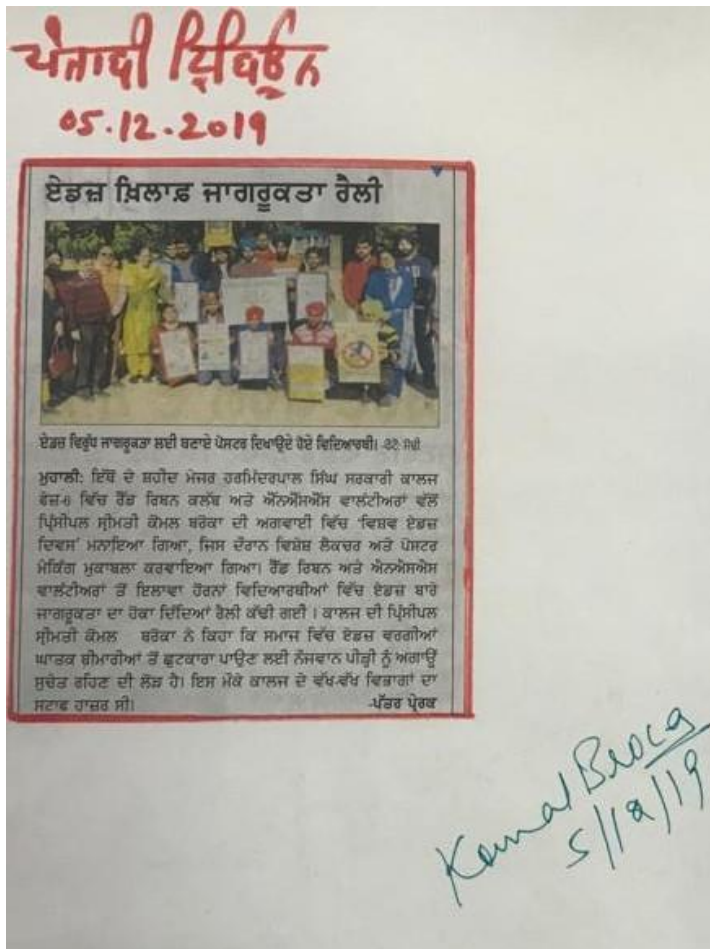 ਪੰਜਾਬੀ ਟ੍ਰਿਬਿਊਨ
05.12.2019
ਏਡਜ਼ ਖ਼ਿਲਾਫ਼ ਜਾਗਰੂਕਤਾ ਰੈਲੀ
ਏਡਜ਼ ਵਿਰੁੱਧ ਜਾਗਰੂਕਤਾ ਲਈ ਬਣਾਏ ਪੋਸਟਰ ਦਿਖਾਉਂਦੇ ਹੋਏ ਵਿਦਿਆਰਥੀ।
ਮੁਹਾਲੀ: ਇੱਥੋਂ ਦੇ ਸ਼ਹੀਦ ਮੇਜਰ ਹਰਮਿੰਦਰਪਾਲ ਸਿੰਘ ਸਰਕਾਰੀ ਕਾਲਜ
ਫੇਜ਼-6 ਵਿੱਚ ਰੈੱਡ ਰਿਬਨ ਕਲੱਬ ਅਤੇ ਐੱਨਐੱਸਐੱਸ ਵਾਲੰਟੀਅਰਾਂ ਵੱਲੋਂ
ਪ੍ਰਿੰਸੀਪਲ ਸ੍ਰੀਮਤੀ ਕੋਮਲ ਬਰੋਕਾ ਦੀ ਅਗਵਾਈ ਵਿੱਚ ‘ਵਿਸ਼ਵ ਏਡਜ਼
ਦਿਵਸ’ ਮਨਾਇਆ ਗਿਆ, ਜਿਸ ਦੌਰਾਨ ਵਿਸ਼ੇਸ਼ ਲੈਕਚਰ ਅਤੇ ਪੋਸਟਰ
ਮੇਕਿੰਗ ਮੁਕਾਬਲਾ ਕਰਵਾਇਆ ਗਿਆ। ਰੈੱਡ ਰਿਬਨ ਅਤੇ ਐਨਐਸਐਸ
ਵਾਲੰਟੀਅਰਾਂ ਤੋਂ ਇਲਾਵਾ ਹੋਰਨਾਂ ਵਿਦਿਆਰਥੀਆਂ ਵਿੱਚ ਏਡਜ਼ ਬਾਰੇ
ਜਾਗਰੂਕਤਾ ਦਾ ਹੋਕਾ ਦਿੰਦਿਆਂ ਰੈਲੀ ਕੱਢੀ ਗਈ । ਕਾਲਜ ਦੀ ਪ੍ਰਿੰਸੀਪਲ
ਸ੍ਰੀਮਤੀ ਕੋਮਲ ਬਰੋਕਾ ਨੇ ਕਿਹਾ ਕਿ ਸਮਾਜ ਵਿੱਚ ਏਡਜ਼ ਵਰਗੀਆਂ
ਘਾਤਕ ਬੀਮਾਰੀਆਂ ਤੋਂ ਛੁਟਕਾਰਾ ਪਾਉਣ ਲਈ ਨੌਜਵਾਨ ਪੀੜ੍ਹੀ ਨੂੰ ਅਗਾਊਂ
ਸੁਚੇਤ ਰਹਿਣ ਦੀ ਲੋੜ ਹੈ। ਇਸ ਮੌਕੇ ਕਾਲਜ ਦੇ ਵੱਖ-ਵੱਖ ਵਿਭਾਗਾਂ ਦਾ
ਸਟਾਫ ਹਾਜ਼ਰ ਸੀ। -ਪੱਤਰ ਪ੍ਰੇਰਕ
Komal Broca
5/12/19